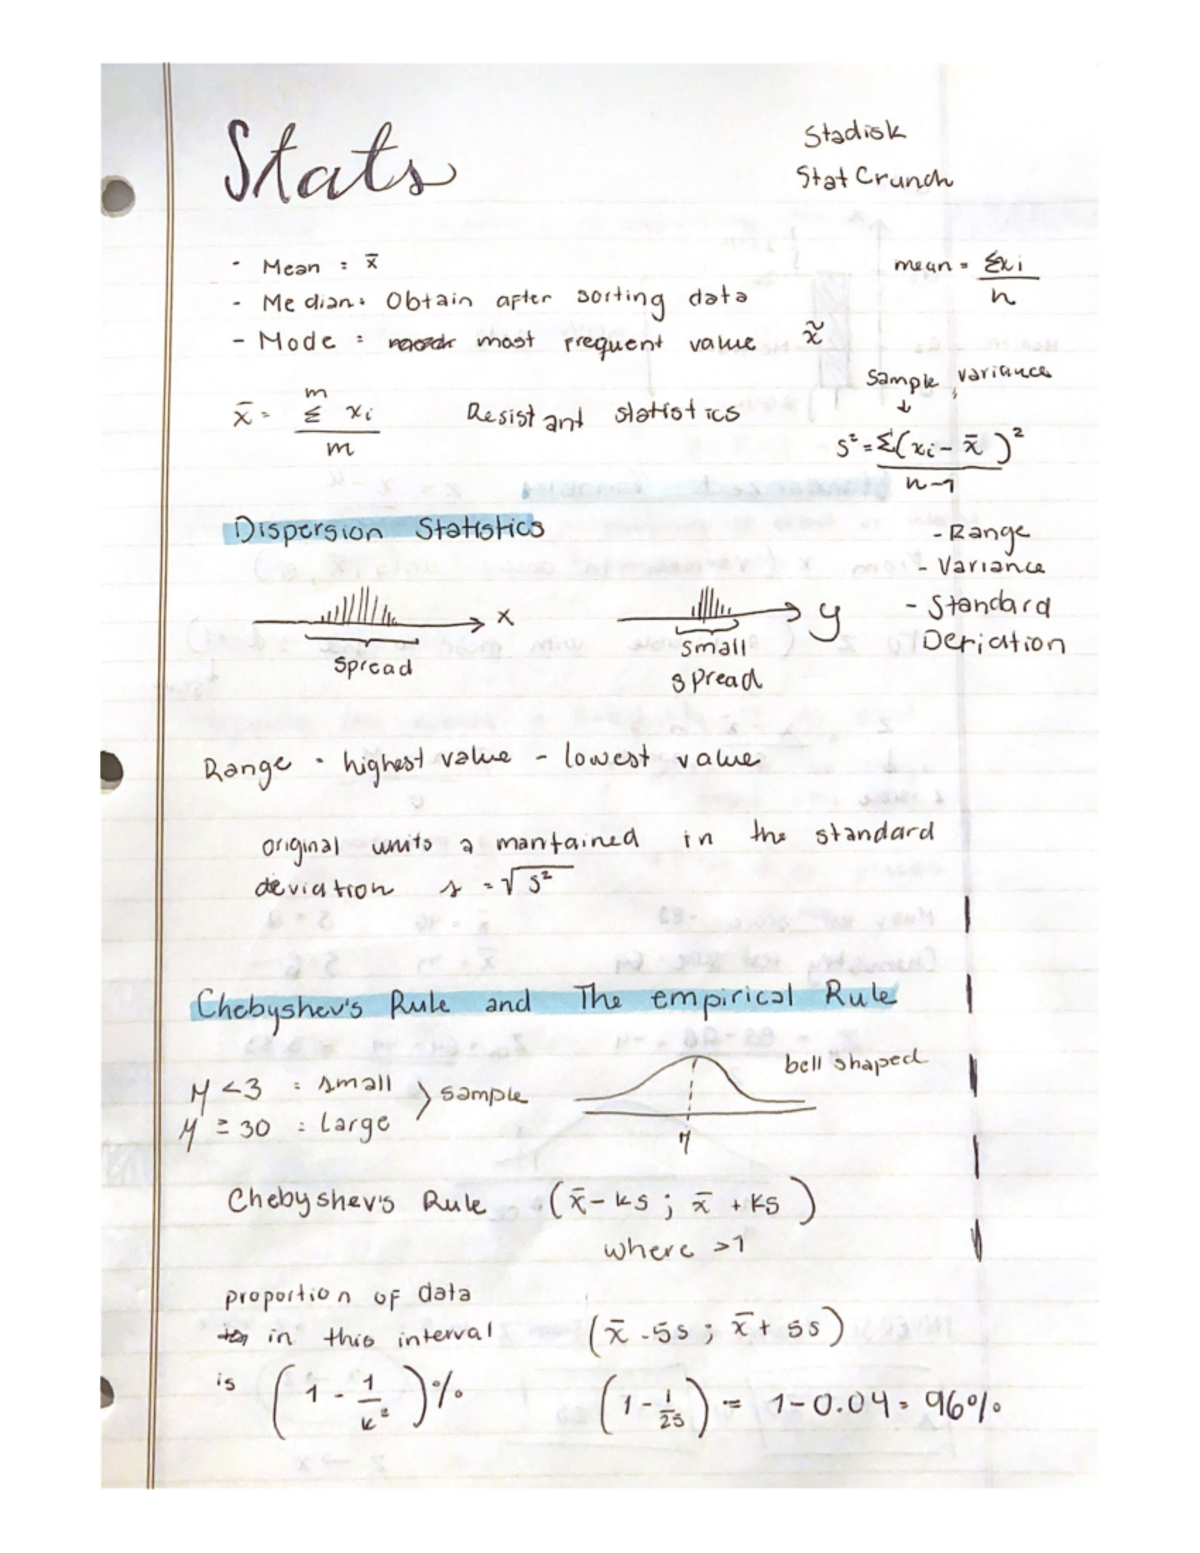 Stats
Stadisk
StatCrunch
- Mean : x̄
- Median: Obtain after sorting data
- Mode : most frequent value x̃
mean = Σxi / n
x̄ = Σ^m xi / m
Resistant statistics
Sample variance
↓
s² = Σ(xi - x̄)² / n-1
Dispersion Statistics
- Range
- Variance
- Standard
Deriation
x
y
spread
small
spread
Range - highest value - lowest value
original units a mantained in the standard
deviation s = √s²
Chebyshev's Rule and The empirical Rule
M <3 : small
M ≥ 30 : Large
> sample
bell shaped
M
Chebyshev's Rule (x̄ - ks ; x̄ + ks)
where >1
proportion of data
in this interval
is (1 - 1/k²)%
(x̄ - 5s ; x̄ + 5s)
(1 - 1/25) = 1-0.04 = 96%